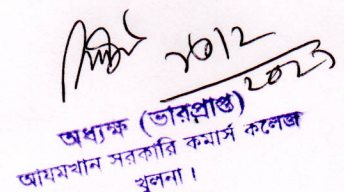 ২০/২
2023
অধ্যক্ষ (ভারপ্রাপ্ত)
আযমখান সরকারি কমার্স কলেজ
খুলনা।